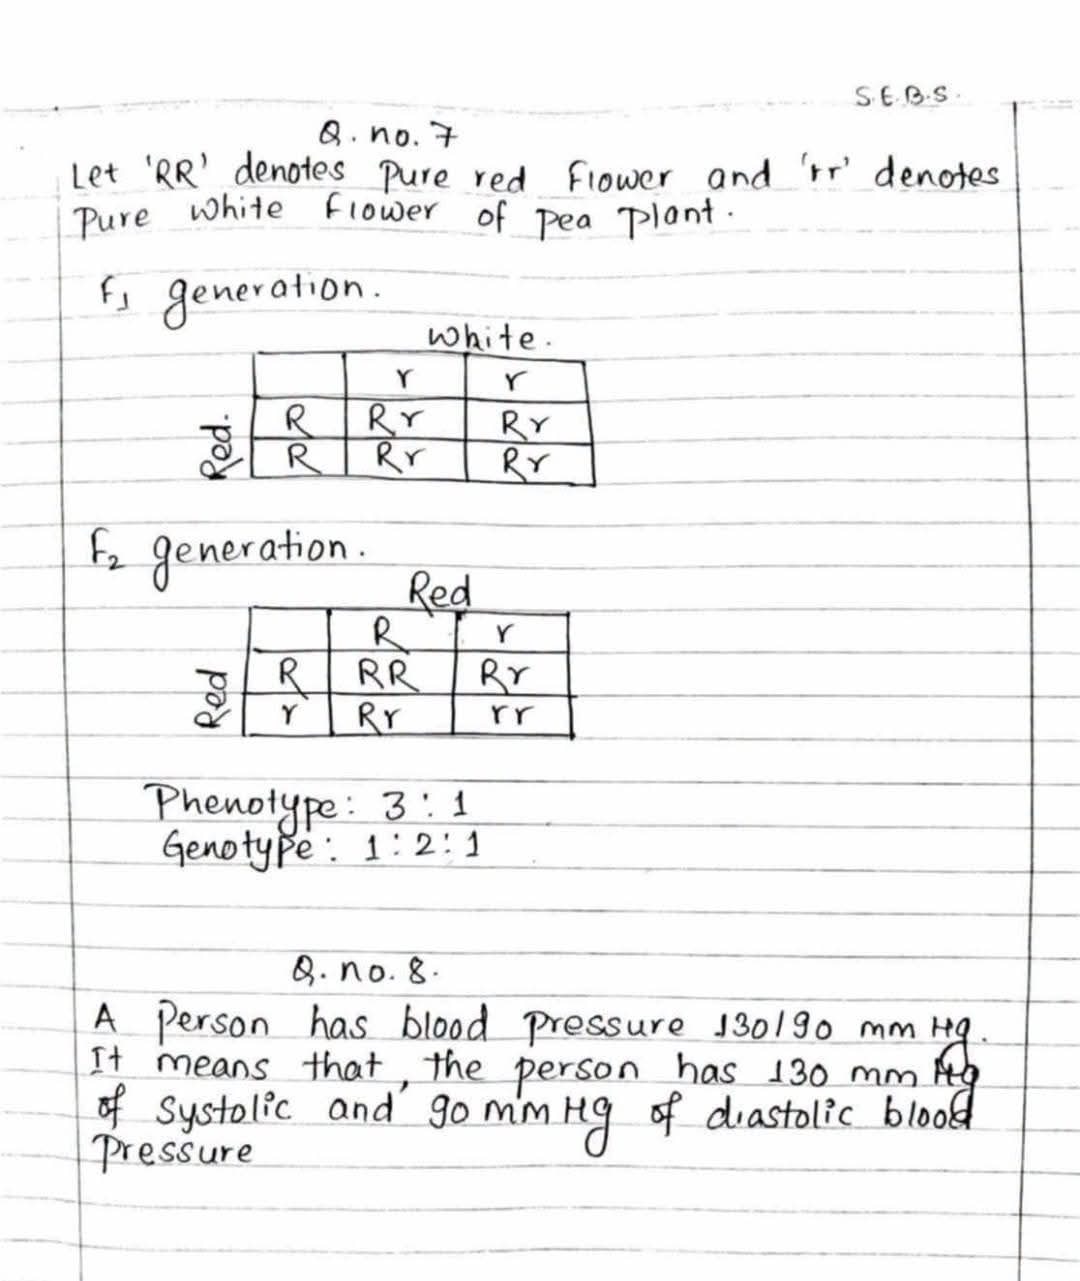 S.E.B.S.
Q. no. 7
Let 'RR' denotes Pure red flower and 'rr' denotes
Pure white flower of pea plant.
F1 generation.
White.
r r
Red.
R Rr Rr
R Rr Rr
F2 generation.
Red
R r
Red
R RR Rr
r Rr rr
Phenotype: 3:1
Genotype: 1:2:1
Q. no. 8.
A Person has blood pressure 130/90 mm Hg.
It means that, the person has 130 mm Hg
of systolic and 90 mm Hg of diastolic blood
Pressure